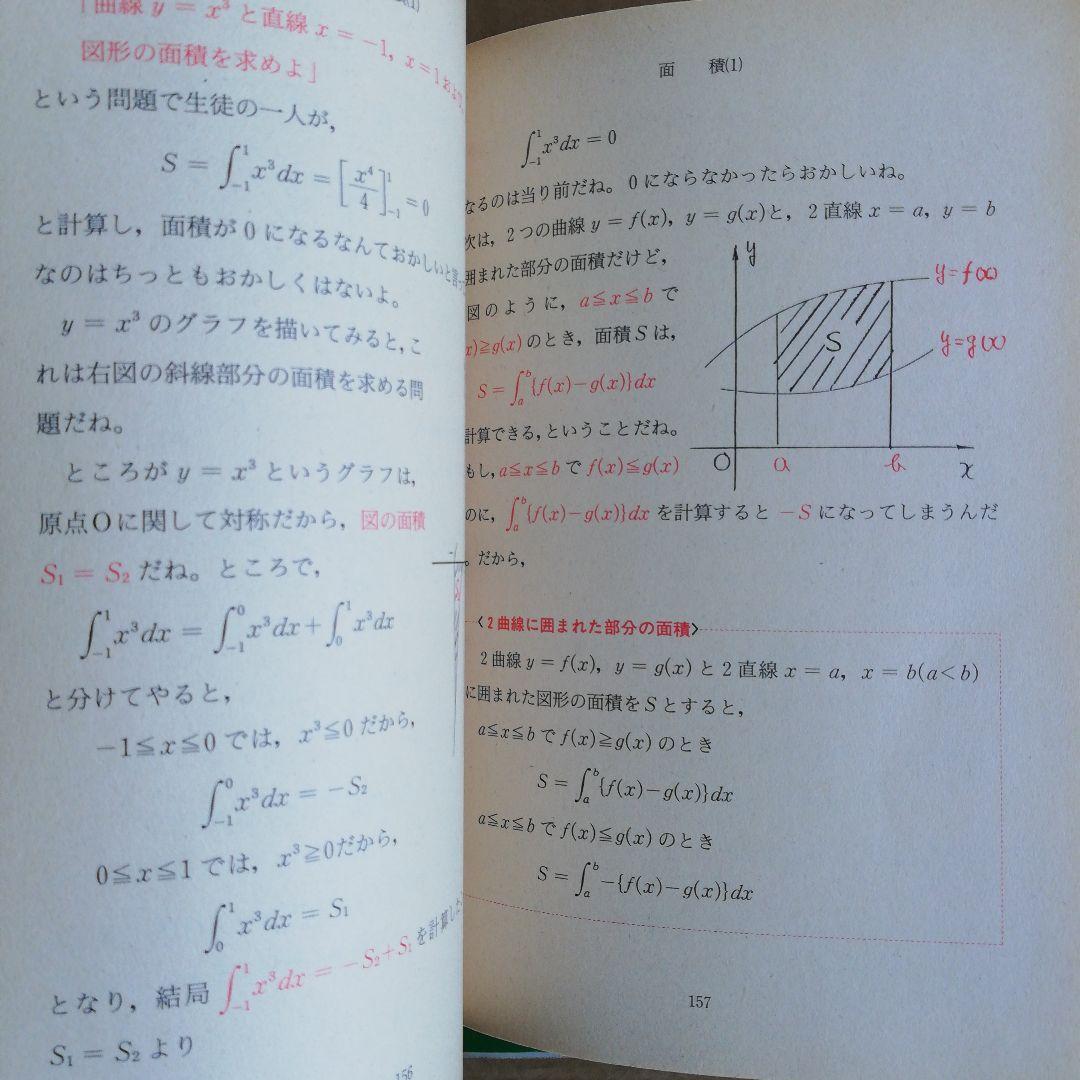 「曲線 y = x³ と直線 x = −1, x = 1 およ
図形の面積を求めよ」
という問題で生徒の一人が,
S = ∫_{-1}^{1} x³dx = [x⁴/4]_{-1}^{1} = 0
と計算し, 面積が0になるなんておかしいと言っ
なのはちっともおかしくはないよ。
y = x³ のグラフを描いてみると, こ
れは右図の斜線部分の面積を求める問
題だね。
ところが y = x³ というグラフは,
原点Oに関して対称だから, 図の面積
S₁ = S₂ だね。ところで,
∫_{-1}^{1} x³dx = ∫_{-1}^{0} x³dx + ∫_{0}^{1} x³dx
と分けてやると,
−1≦x≦0 では, x³≦0 だから,
∫_{-1}^{0} x³dx = −S₂
0≦x≦1 では, x³≧0 だから,
∫_{0}^{1} x³dx = S₁
となり, 結局 ∫_{-1}^{1} x³dx = −S₂+S₁ を計算した
S₁ = S₂ より
156
面 積(1)
∫_{-1}^{1} x³dx = 0
なるのは当り前だね。0にならなかったらおかしいね。
次は, 2つの曲線 y = f(x), y = g(x)と, 2直線 x = a, y = b
囲まれた部分の面積だけど,
図のように, a≦x≦b で
x)≧g(x) のとき, 面積Sは,
S = ∫_{a}^{b} {f(x)−g(x)}dx
計算できる, ということだね。
もし, a≦x≦b で f(x)≦g(x)
のに, ∫_{a}^{b} {f(x)−g(x)}dx を計算すると −S になってしまうんだ
。だから,
y
y=f(x)
S
y=g(x)
O a b x
〈2曲線に囲まれた部分の面積〉
2曲線 y = f(x), y = g(x) と2直線 x = a, x = b(a<b)
に囲まれた図形の面積をSとすると,
a≦x≦b で f(x)≧g(x) のとき
S = ∫_{a}^{b} {f(x)−g(x)}dx
a≦x≦b で f(x)≦g(x) のとき
S = ∫_{a}^{b} −{f(x)−g(x)}dx
157